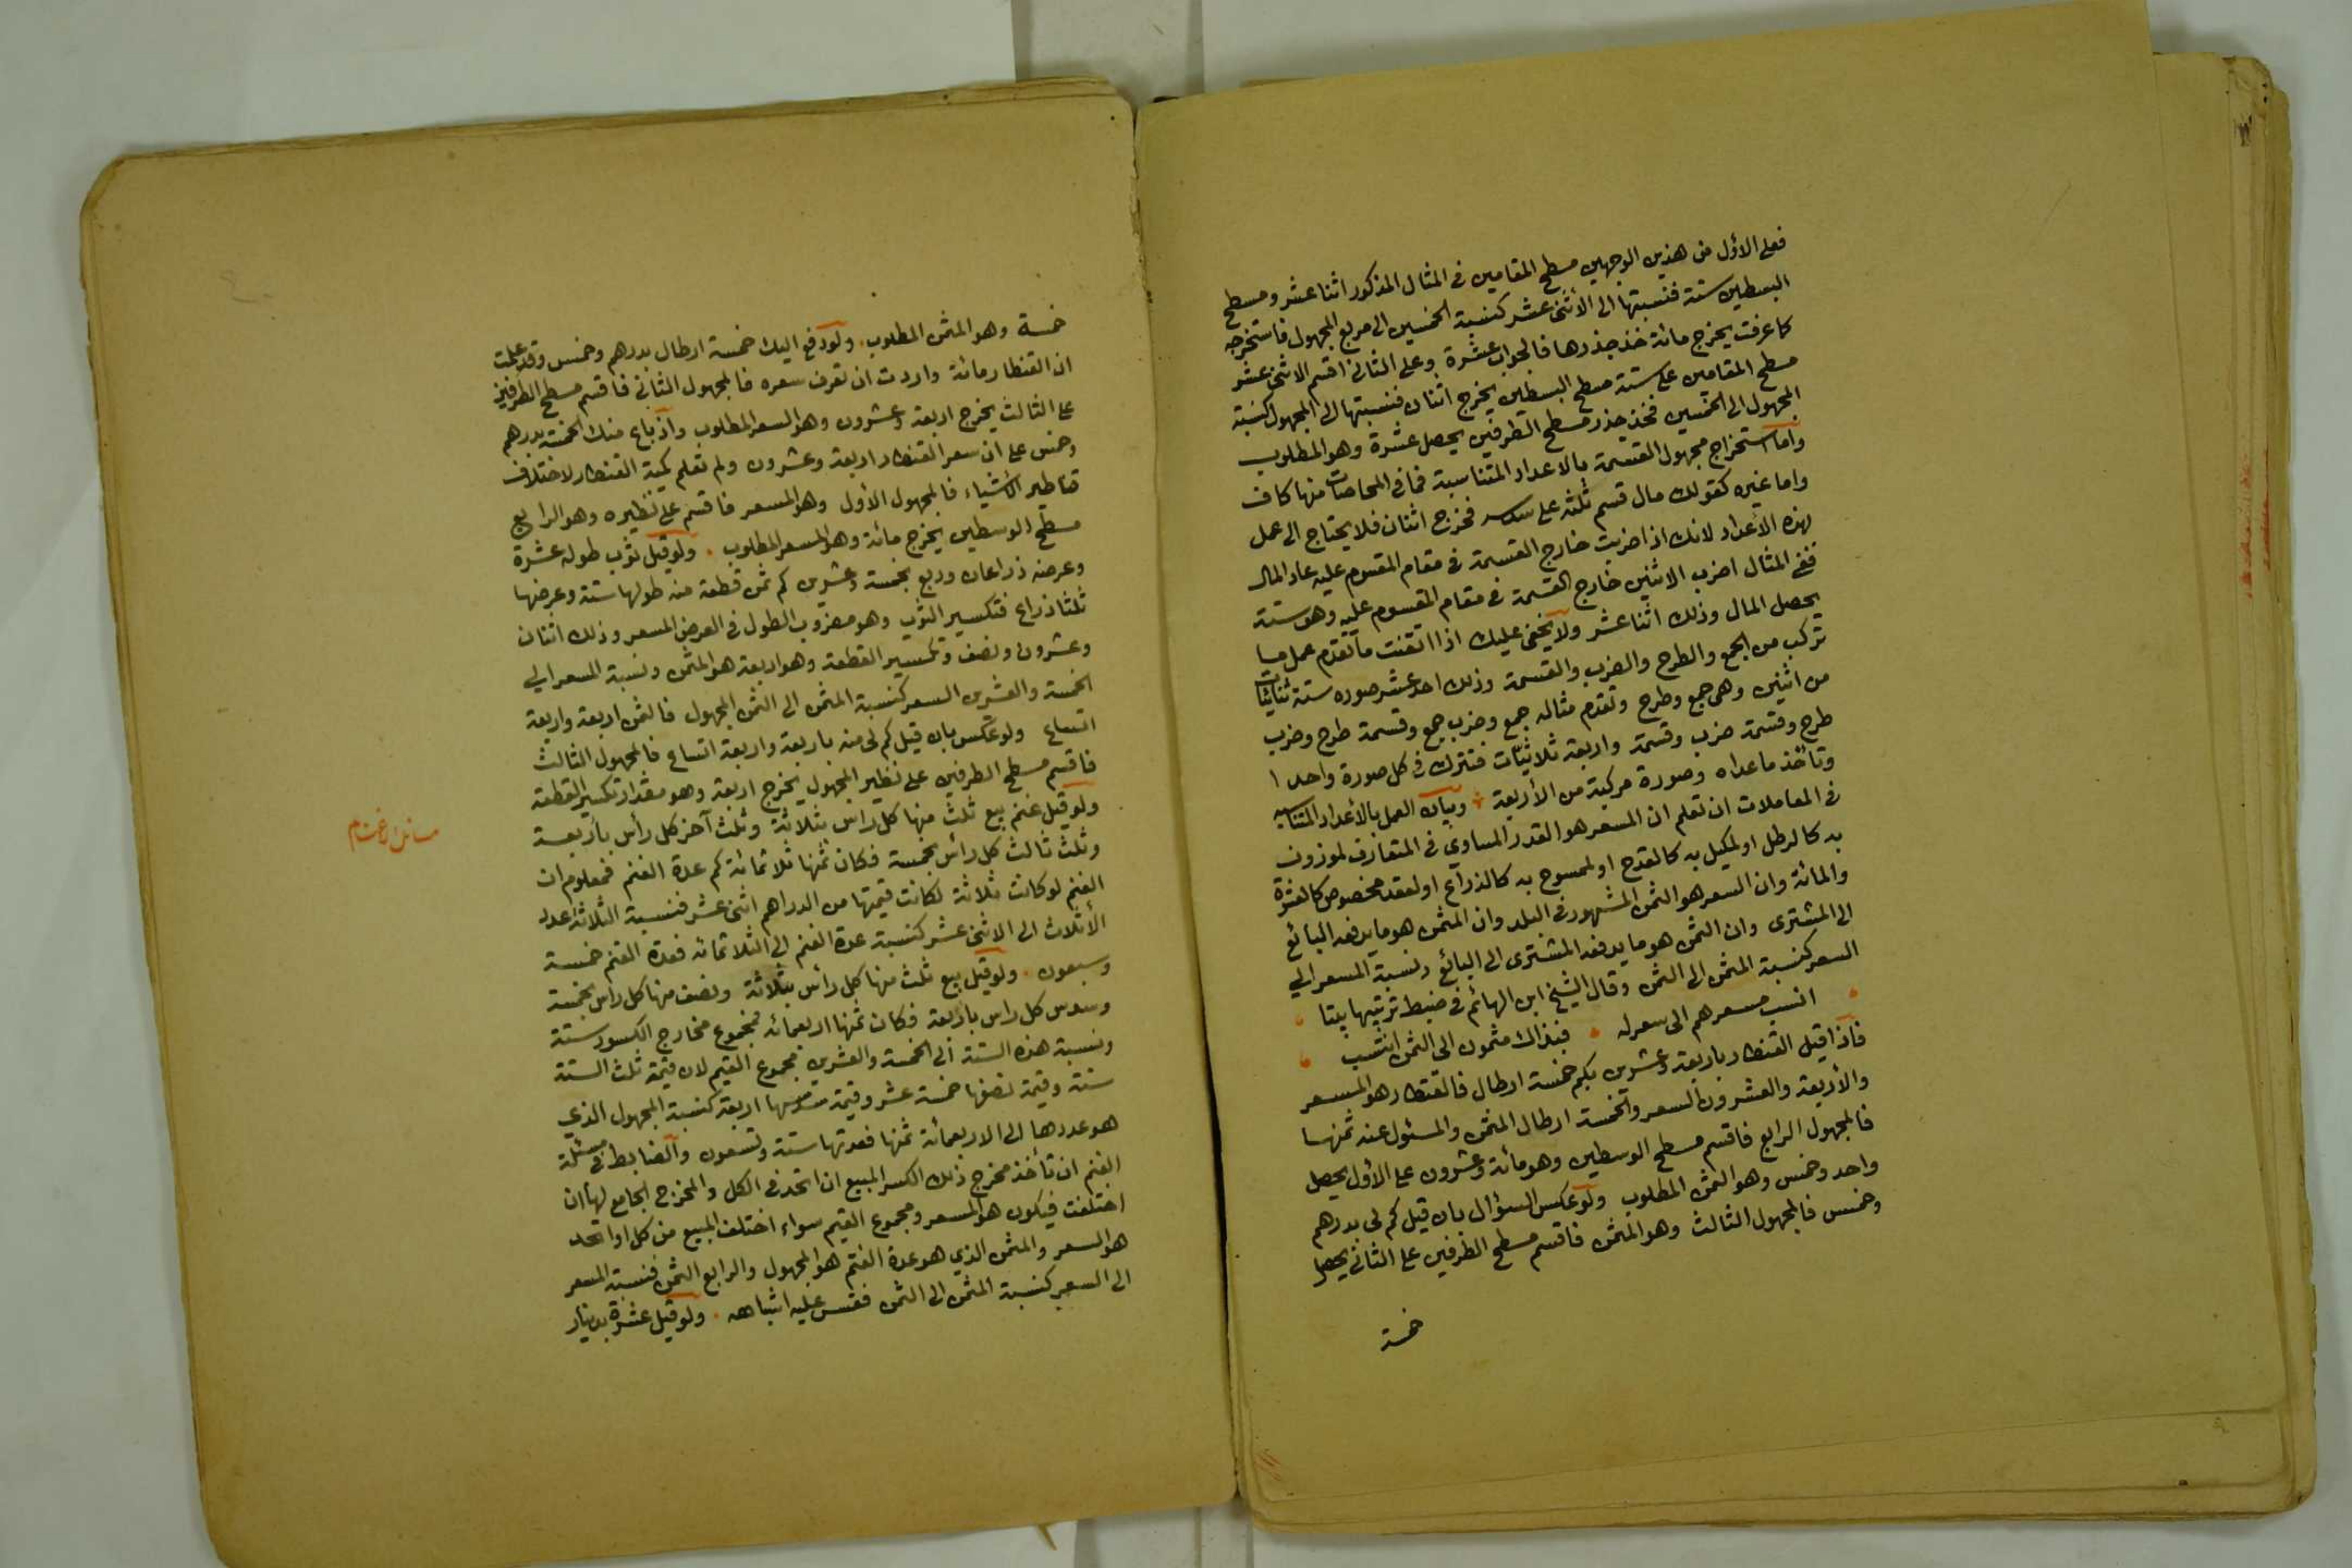 فعلى الاول من هذين الوجهين مسطح المقامين في المثال المذكور اثنا عشر ومسطح
البسطين ستة فنسبتها الى الاثنى عشر كنسبة الخمسين الى مربع المجهول فاستخرجه
كما عرفت يخرج مائة خذ جذرها فالجواب عشرة وعلى الثاني اقسم الاثنى عشر
مسطح المقامين على ستة مسطح البسطين يخرج اثنان فنسبتها الى المجهول كنسبة
المجهول الى الخمسين فخذ جذر مسطح الطرفين يحصل عشرة وهو المطلوب
واما استخراج مجهول القسمة بالاعداد المتناسبة فما في المحاصات منها كاف
واما غيره كقولك مال قسم ثلثه على سدسه فخرج اثنان فلا يحتاج الى عمل
لهذه الأعداد لانك اذا ضربت خارج القسمة في مقام المقسوم عليه عاد المال
ففي المثال اضرب الاثنين خارج القسمة في مقام المقسوم عليه وهو ستة
يحصل المال وذلك اثنا عشر ولا يخفى عليك اذا اتقنت ما تقدم عمل ما
تركب من الجمع والطرح والضرب والقسمة وذلك احد عشر صورة ستة ثنائيات
من اثنين وهى جمع وطرح وتقدم مثاله جمع وضرب جمع وقسمة طرح وضرب
طرح وقسمة ضرب وقسمة واربعة ثلاثيّات فتترك في كل صورة واحدا
وتأخذ ما عداه وصورة مركبة من الأربعة وبيان العمل بالأعداد المتناسبه
في المعاملات ان تعلم ان المسعر هو القدر المساوي في المتعارف لموزون
به كالرطل او لمكيل به كالقدح او لممسوح به كالذراع او لعقد مخصوص كالعشرة
والمائة وان السعر هو الثمن المشهور في البلد وان المثمن هو ما يدفعه البائع
الى المشترى وان الثمن هو ما يدفعه المشترى الى البائع ونسبة المسعر الى
السعر كنسبة المثمن الى الثمن وقال الشيخ ابن الهائم في ضبط ترتيبها بيتا
انسب مسعرهم الى سعر له فبذاك مثمون الى الثمن انتسب
فاذا قيل القنطار باربعة وعشرين بكم خمسة ارطال فالقنطار هو المسعر
والأربعة والعشرون السعر والخمسة ارطال المثمن والمسئول عنه ثمنها
فالمجهول الرابع فاقسم مسطح الوسطين وهو مائة وعشرون على الأول يحصل
واحد وخمس وهو الثمن المطلوب ولو عكس السؤال بان قيل كم لى بدرهم
وخمس فالمجهول الثالث وهو المثمن فاقسم مسطح الطرفين على الثاني يحصل
خمسة
خمسة وهو المثمن المطلوب ولو دفع اليك خمسة ارطال بدرهم وخمس وقد علمت
ان القنطار مائة واردت ان تعرف سعره فالمجهول الثاني فاقسم مسطح الطرفين
على الثالث يخرج اربعة وعشرون وهو السعر المطلوب واذ باع منك الخمسة بدرهم
وخمس على ان سعر القنطار اربعة وعشرون ولم تعلم كمية القنطار لاختلاف
قناطير الأشياء فالمجهول الأول وهو المسعر فاقسم على نظيره وهو الرابع
مسطح الوسطين يخرج مائة وهو المسعر المطلوب ولو قيل ثوب طوله عشرة
وعرضه ذراعان وربع بخمسة وعشرين كم ثمن قطعة منه طولها ستة وعرضها
ثلثا ذراع فتكسير الثوب وهو مضروب الطول في العرض المسعر وذلك اثنان
وعشرون ونصف وتكسير القطعة وهو اربعة هو المثمن ونسبة المسعر الى
الخمسة والعشرين السعر كنسبة المثمن الى الثمن المجهول فالثمن اربعة واربعة
اتساع ولو عكس بان قيل كم لى منه باربعة واربعة اتساع فالمجهول الثالث
فاقسم مسطح الطرفين على نظير المجهول يخرج اربعة وهو مقدار تكسير القطعة
ولو قيل غنم بيع ثلث منها كل راس بثلاثة وثلث آخر كل رأس باربعة
وثلث ثالث كل رأس بخمسة فكان ثمنها ثلاثمائة كم عدة الغنم فمعلوم ان
الغنم لو كانت ثلاثة لكانت قيمتها من الدراهم اثنى عشر فنسبة الثلاثة عدد
الأثلاث الى الاثنى عشر كنسبة عدة الغنم الى الثلاثمائة فعدة الغنم خمسة
وسبعون ولو قيل بيع ثلث منها كل رأس بثلاثة ونصف منها كل راس بخمسة
وسدس كل راس باربعة فكان ثمنها اربعمائه فمجموع مخارج الكسور ستة
ونسبة هذه الستة الى الخمسة والعشرين مجموع القيم لان قيمة ثلث الستة
ستة وقيمة نصفها خمسة عشر وقيمة سدسها اربعة كنسبة المجهول الذي
هو عددها الى الاربعمائة ثمنها فعدتها ستة وتسعون والضابط في مسئلة
الغنم ان تأخذ مخرج ذلك الكسر المبيع ان اتحد في الكل والمخرج الجامع لها ان
اختلفت فيكون هو المسعر ومجموع القيم سواء اختلف المبيع من كل او اتحد
هو السعر والمثمن الذي هو عدة الغنم هو المجهول والرابع الثمن فنسبة المسعر
الى السعر كنسبة المثمن الى الثمن فقس عليه اشباهه ولو قيل عشرة بدينار
مسائل الاغنام